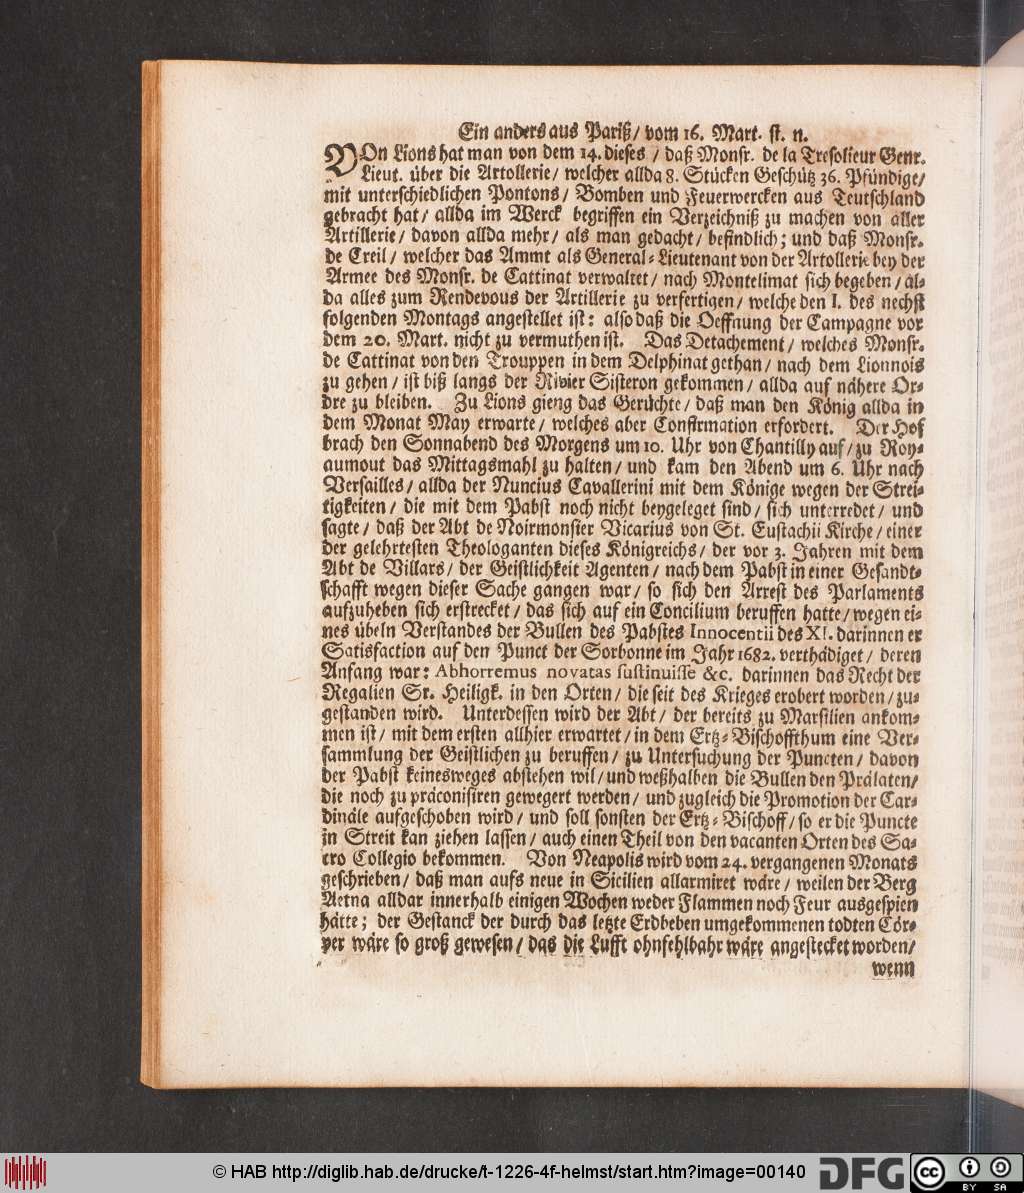 Ein anders aus Pariß / vom 16. Mart. st. n.
VOn Lions hat man von dem 14. dieses / daß Monsr. de la Tresolieur Genr.
Lieut. über die Artollerie / welcher allda 8. Stücken Geschütz 36. Pfündige /
mit unterschiedlichen Pontons / Bomben und Feuerwercken aus Teutschland
gebracht hat / allda im Werck begriffen ein Verzeichniß zu machen von aller
Artillerie / davon allda mehr / als man gedacht / befindlich; und daß Monsr.
de Creil / welcher das Ammt als General-Lieutenant von der Artollerie bey der
Armee des Monsr. de Cattinat verwaltet / nach Montelimat sich begeben / al-
da alles zum Rendevous der Artillerie zu verfertigen / welche den 1. des nechst
folgenden Montags angestellet ist: also daß die Oeffnung der Campagne vor
dem 20. Mart. nicht zu vermuthen ist. Das Detachement / welches Monsr.
de Cattinat von den Trouppen in dem Delphinat gethan / nach dem Lionnois
zu gehen / ist biß langs der Rivier Sisteron gekommen / allda auf nähere Or-
dre zu bleiben. Zu Lions gieng das Gerüchte / daß man den König allda in
dem Monat May erwarte / welches aber Confirmation erfordert. Der Hof
brach den Sonnabend des Morgens um 10. Uhr von Chantilly auf / zu Roy-
aumout das Mittagsmahl zu halten / und kam den Abend um 6. Uhr nach
Versailles / allda der Nuncius Cavallerini mit dem Könige wegen der Strei-
tigkeiten / die mit dem Pabst noch nicht beygeleget sind / sich unterredet / und
sagte / daß der Abt de Noirmonsier Vicarius von St. Eustachii Kirche / einer
der gelehrtesten Theologanten dieses Königreichs / der vor 3. Jahren mit dem
Abt de Villars / der Geistlichkeit Agenten / nach dem Pabst in einer Gesandt-
schafft wegen dieser Sache gangen war / so sich den Arrest des Parlaments
aufzuheben sich erstrecket / das sich auf ein Concilium beruffen hatte / wegen ei-
nes übeln Verstandes der Bullen des Pabstes Innocentii des XI. darinnen er
Satisfaction auf den Punct der Sorbonne im Jahr 1682. verthädiget / deren
Anfang war: Abhorremus novatas sustinuisse &c. darinnen das Recht der
Regalien Sr. Heiligk. in den Orten / die seit des Krieges erobert worden / zu-
gestanden wird. Unterdessen wird der Abt / der bereits zu Marsilien ankom-
men ist / mit dem ersten allhier erwartet / in dem Ertz-Bischoffthum eine Ver-
sammlung der Geistlichen zu beruffen / zu Untersuchung der Puncten / davon
der Pabst keinesweges abstehen wil / und weßhalben die Bullen den Prälaten /
die noch zu präconisiren gewegert werden / und zugleich die Promotion der Car-
dinäle aufgeschoben wird / und soll sonsten der Ertz-Bischoff / so er die Puncte
in Streit kan ziehen lassen / auch einen Theil von den vacanten Orten des Sa-
cro Collegio bekommen. Von Neapolis wird vom 24. vergangenen Monats
geschrieben / daß man aufs neue in Sicilien allarmiret wäre / weilen der Berg
Aetna alldar innerhalb einigen Wochen weder Flammen noch Feur ausgespien
hätte; der Gestanck der durch das letzte Erdbeben umgekommenen todten Cör-
per wäre so groß gewesen / das die Lufft ohnfehlbahr wäre angestecket worden /
wenn
© HAB http://diglib.hab.de/drucke/t-1226-4f-helmst/start.htm?image=00140
DFG
cc BY SA